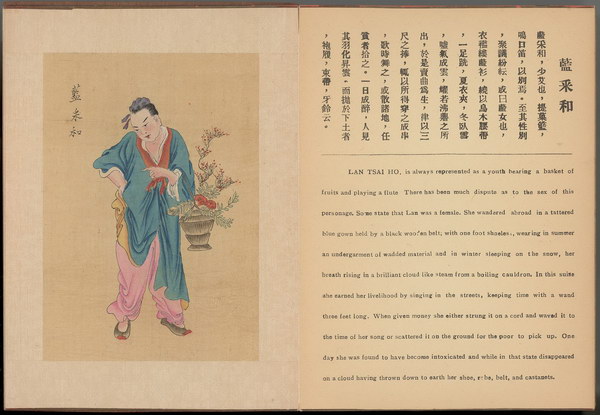 藍采和
藍采和
藍采和，少艾也，提菓籃，
鳴口笛，以別焉。至其性別
，聚議紛紜，或曰藍女也，
衣襤縷藍衫，繞以烏木腰帶
，一足跣，夏衣夾，冬臥雪
，噓氣成雲，燿若沸鼎之所
出，於是賣曲爲生，律以三
尺之棒，輒以所得穿之成串
，歌時舞之，或散諸地，任
貧者拾之。一日成醉，人見
其羽化昇雲。而拋於下土者
，袍履，束帶，牙鈴云。
LAN TSAI HO, is always represented as a youth bearing a basket of
fruits and playing a flute There has been much dispute as to the sex of this
personage. Some state that Lan was a female. She wandered abroad in a tattered
blue gown held by a black woofen belt; with one foot shoeless, wearing in summer
an undergarment of wadded material and in winter sleeping on the snow, her
breath rising in a brilliant cloud like steam from a boiling cauldron. In this suite
she earned her livelihood by singing in the streets, keeping time with a wand
three feet long. When given money she either strung it on a cord and waved it to
the time of her song or scattered it on the ground for the poor to pick up. One
day she was found to have become intoxicated and while in that state disappeared
on a cloud having thrown down to earth her shoe, robe, belt, and castanets.